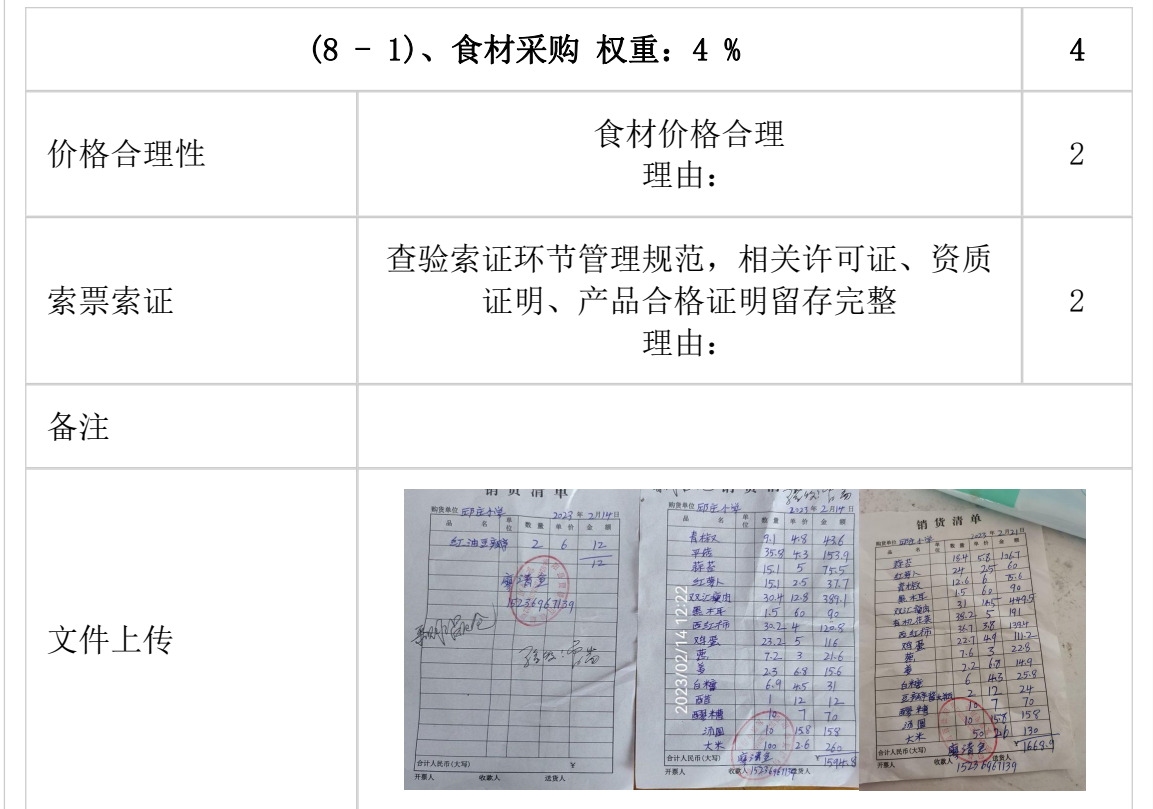 (8 - 1)、食材采购 权重: 4 % 4
价格合理性
食材价格合理
理由:
2
索票索证
查验索证环节管理规范, 相关许可证、资质
证明、产品合格证明留存完整
理由:
2
备注
文件上传
销货清单
购货单位 邱庄小学 2023年2月14日
品 名 单位 数量 单价 金额
2 6 12
12
廖清鱼
15236967139
合计人民币(大写) ¥
开票人 收款人 送货人
购货单位 邱庄小学 2023年2月14日
品 名 单位 数量 单价 金额
青椒 9.1 4.8 43.6
35.8 4.3 153.9
蒜苔 15.1 5 75.5
红萝卜 15.1 2.5 37.7
双汇瘦肉 30.4 12.8 389.1
黑木耳 1.5 60 90
西红柿 30.2 4 120.8
鸡蛋 23.2 5 116
葱 7.2 3 21.6
姜 2.3 6.8 15.6
白糖 6.9 4.5 31
1 12 12
醪糟 10 7 70
汤圆 10 15.8 158
大米 100 2.6 260
合计人民币(大写) ¥ 1594.8
开票人 收款人 送货人
2023/02/14 12:22
销货清单
购货单位 邱庄小学 2023年2月21日
品 名 单位 数量 单价 金额
蒜苔
红萝卜 24 2.5 60
青椒 12.6 6 75.6
黑木耳 1.5 60 90
双汇瘦肉 31 14.5 449.5
有机花菜 38.2 5 191
西红柿 36.7 3.8 139.4
鸡蛋 22.7 4.9 111.2
葱 7.6 3 22.8
姜 2.2 6.8 14.9
白糖 6 4.3 25.8
2 12 24
醪糟 10 7 70
汤圆 10 15.8 158
大米 50 2.6 130
合计人民币(大写) ¥ 1668.9
开票人 收款人 送货人
15236961139